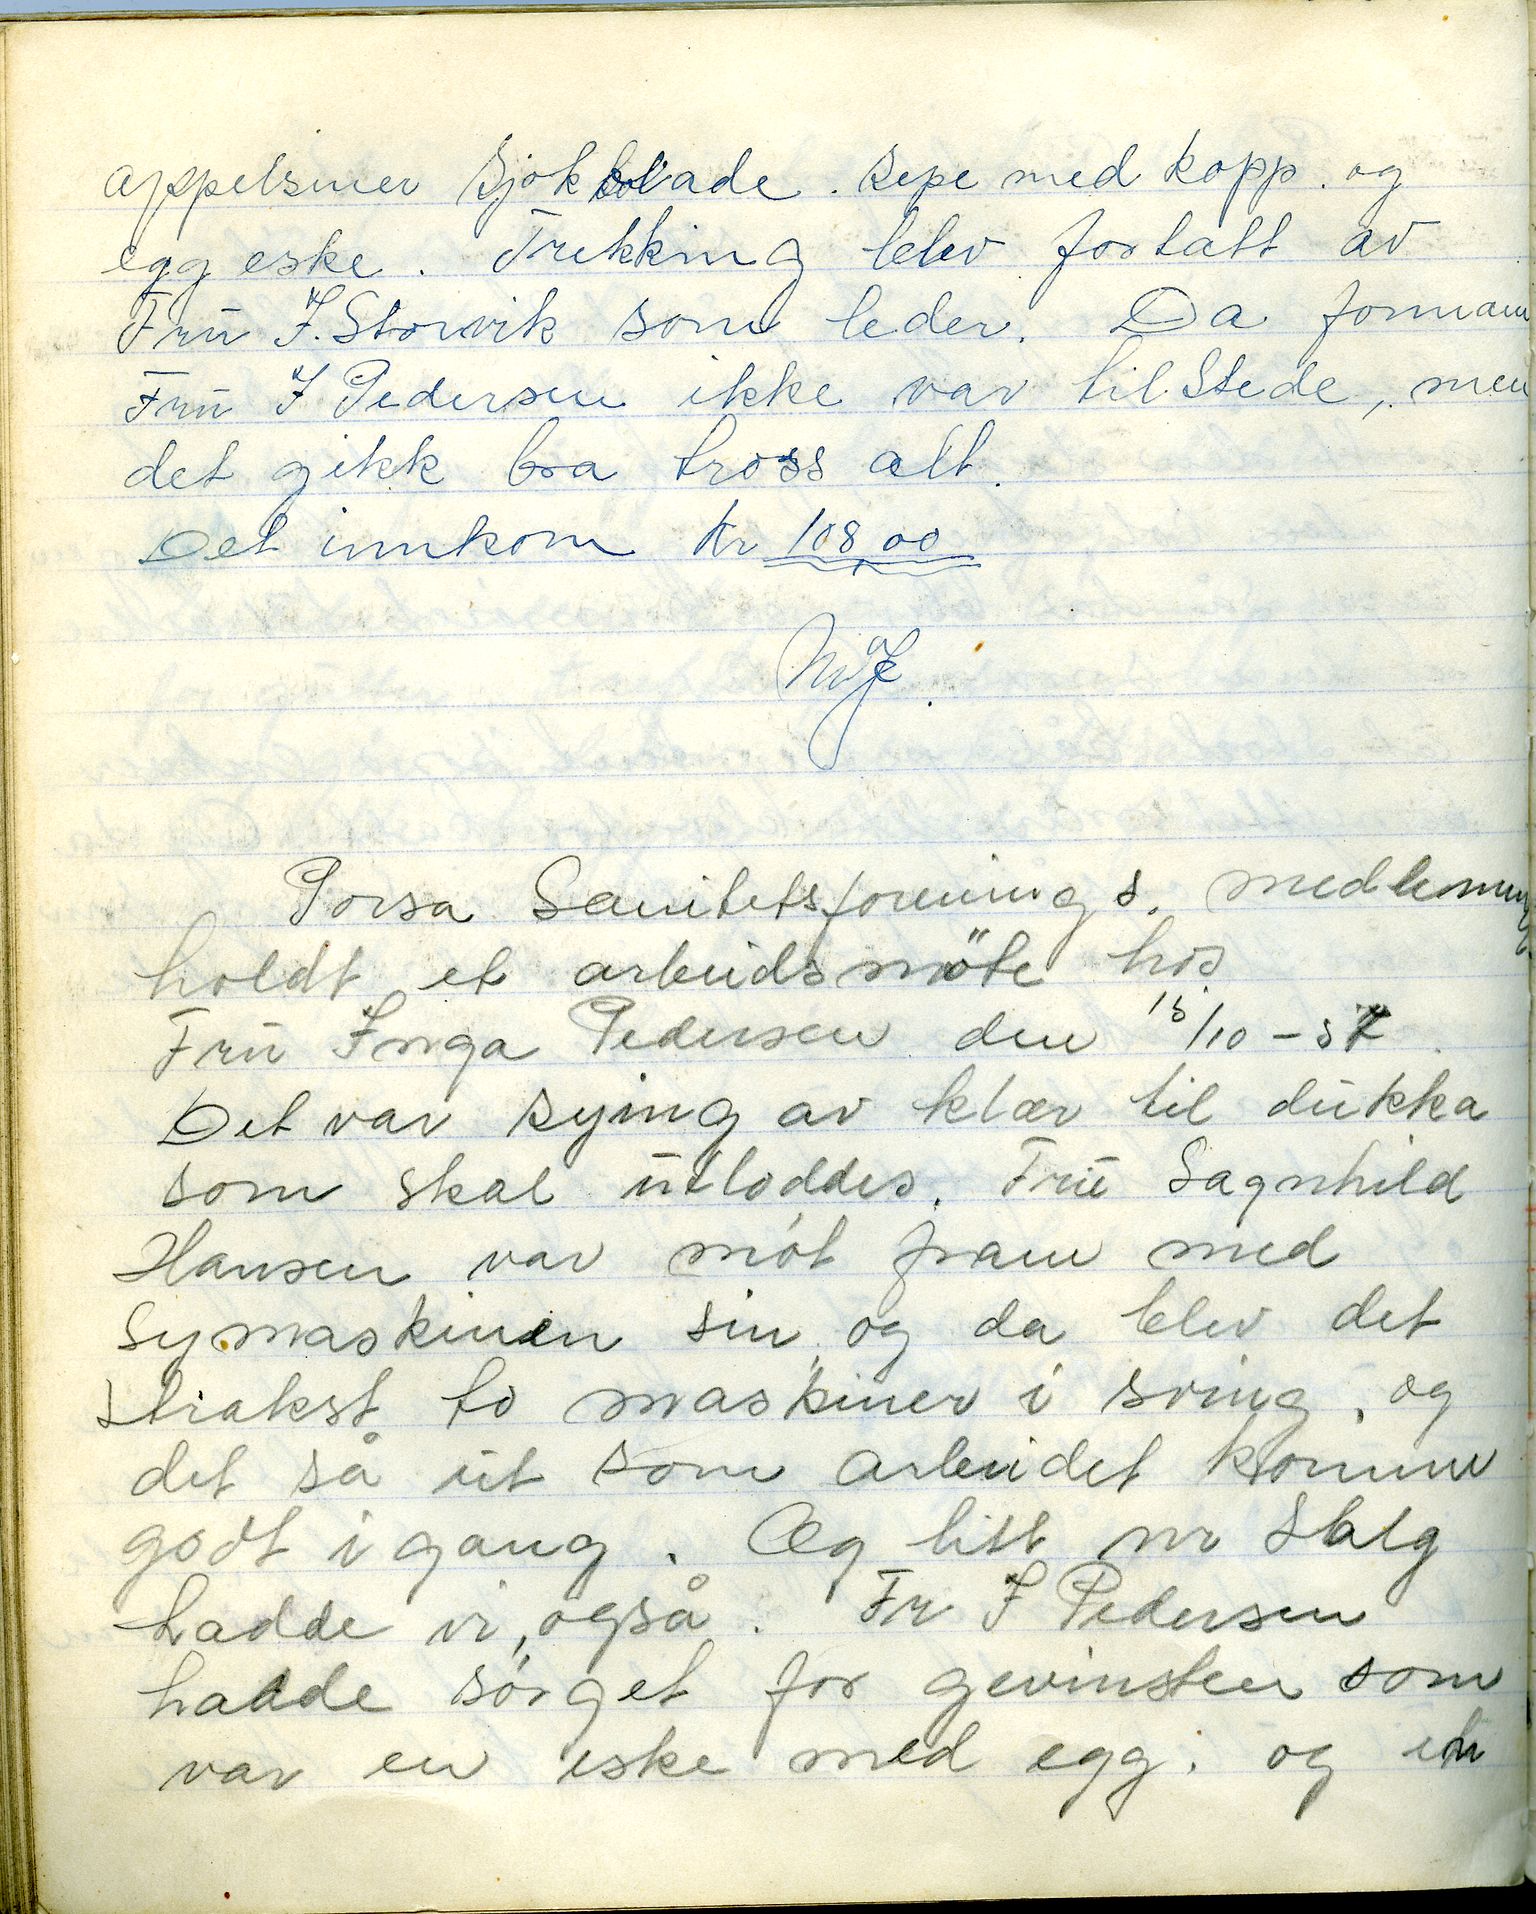 appelsiner sjokkolade. sepe med kopp. og
egg eske. Trekking blev fortatt av
Frü I. Storvik som leder. Da formann
Frü I Pedersen ikke var tilstede, men
det gikk bra tross alt.
Det innkom kr 108 00
Porsa Sanitetsforenings. medlemmer
holdt et arbeidsmöte hos
Frü Inga Pedersen den 15/10-57.
Det var sying av klær til dükka
som skal ütloddes. Frü Sagnhild
Hansen var möt fram med
Symaskinen sin og da blev det
strakst to maskiner i sving, og
det så üt som arbeidet kommer
godt i gang. Og litt nr salg
hadde vi, også. Fr I Pedersen
hadde sörget for gevinsten som
var en eske med egg. og en